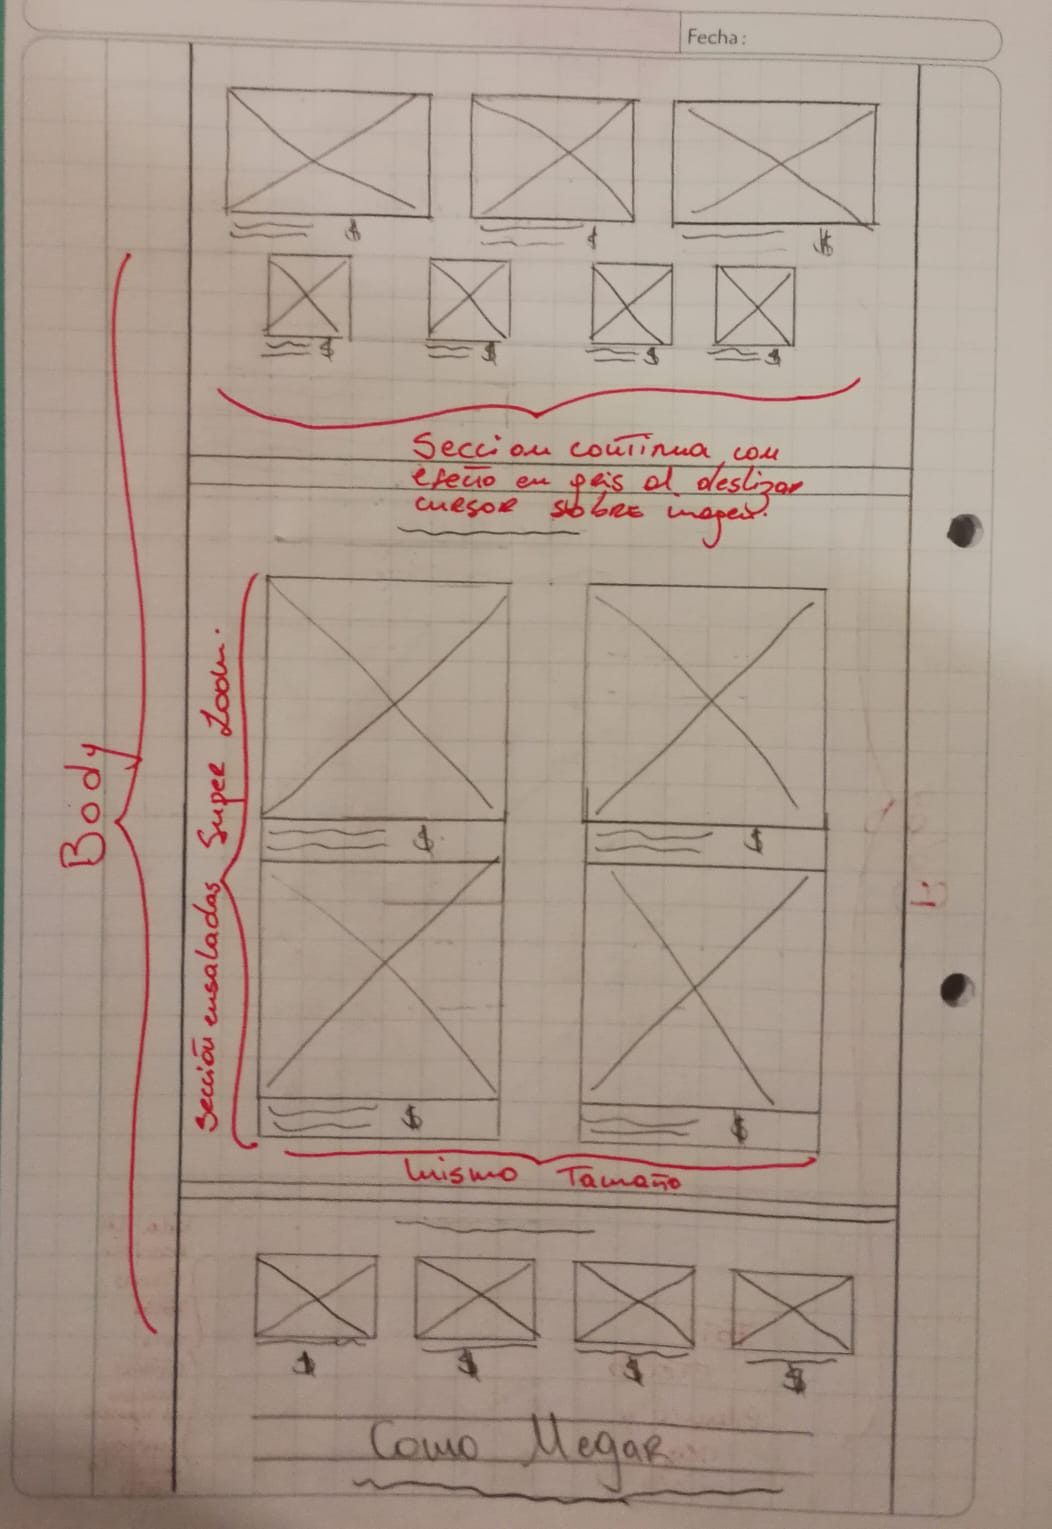 Fecha:
$ $ $
$ $ $ $
Seccion continua, con
efecto en gris al deslizar
cursor sobre imagen.
Body
Sección ensaladas Super Zoom.
$ $
$ $
Mismo Tamaño
$ $ $ $
Como Megar